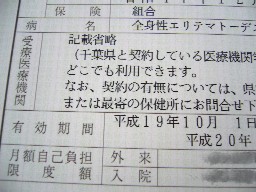 保険 組合
病名 全身性エリテマトーデ
受療医療機関
記載省略
(千葉県と契約している医療機関
どこでも利用できます。
なお、契約の有無については、県
または最寄の保健所にお問合せ下
有効期間
平成19年10月 1日
平成20年
月額自己負担限度額
外来
入院